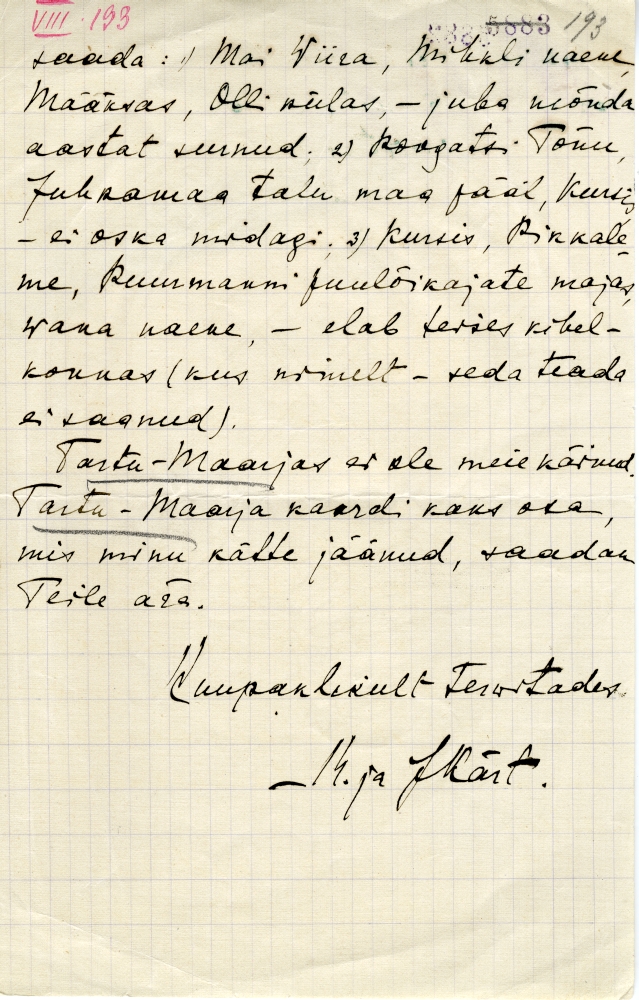 VIII 193
5883 193
saada: 1) Mai Wiira, Mihkli naene,
Määksas, Olli külas, – juba mõnda
aastat surnud; 2) Koogatsi Tõnu,
Juhkamaa talu maa pääl, Kursis
– ei oska midagi; 3) Kursis, Pikkale-
me, Kuurmanni puulõikajate majas,
wana naene, – elab teises kihel-
konnas (kus nimelt – seda teada
ei saanud).
Tartu-Maarjas ei ole meie käinud.
Tartu-Maarja kaardi kaks osa,
mis minu kätte jäänud, saadan
Teile ära.
Kuupaklikult terwitades
– K. ja J Kärt.